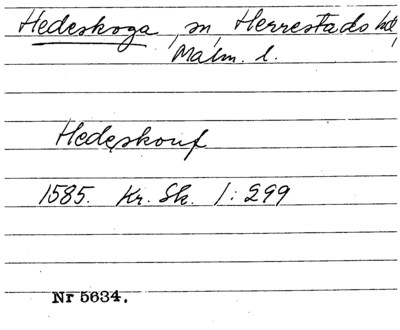 Hedeskoga, sn, Herrestads hd,
Malm. l.
Hedeskouf
1585. Kr. Sk. 1: 299
Nr 5634.